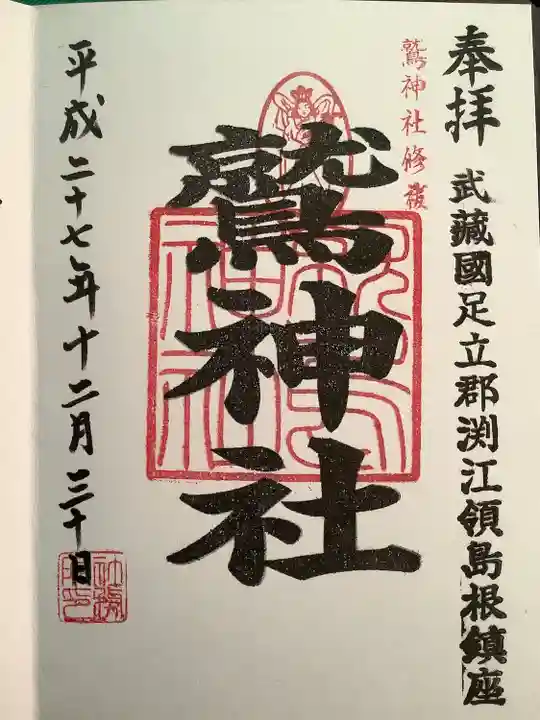 奉拝 武藏國足立郡渕江領島根鎮座
鷲神社修復
鷲神社
平成二十七年十二月三十日